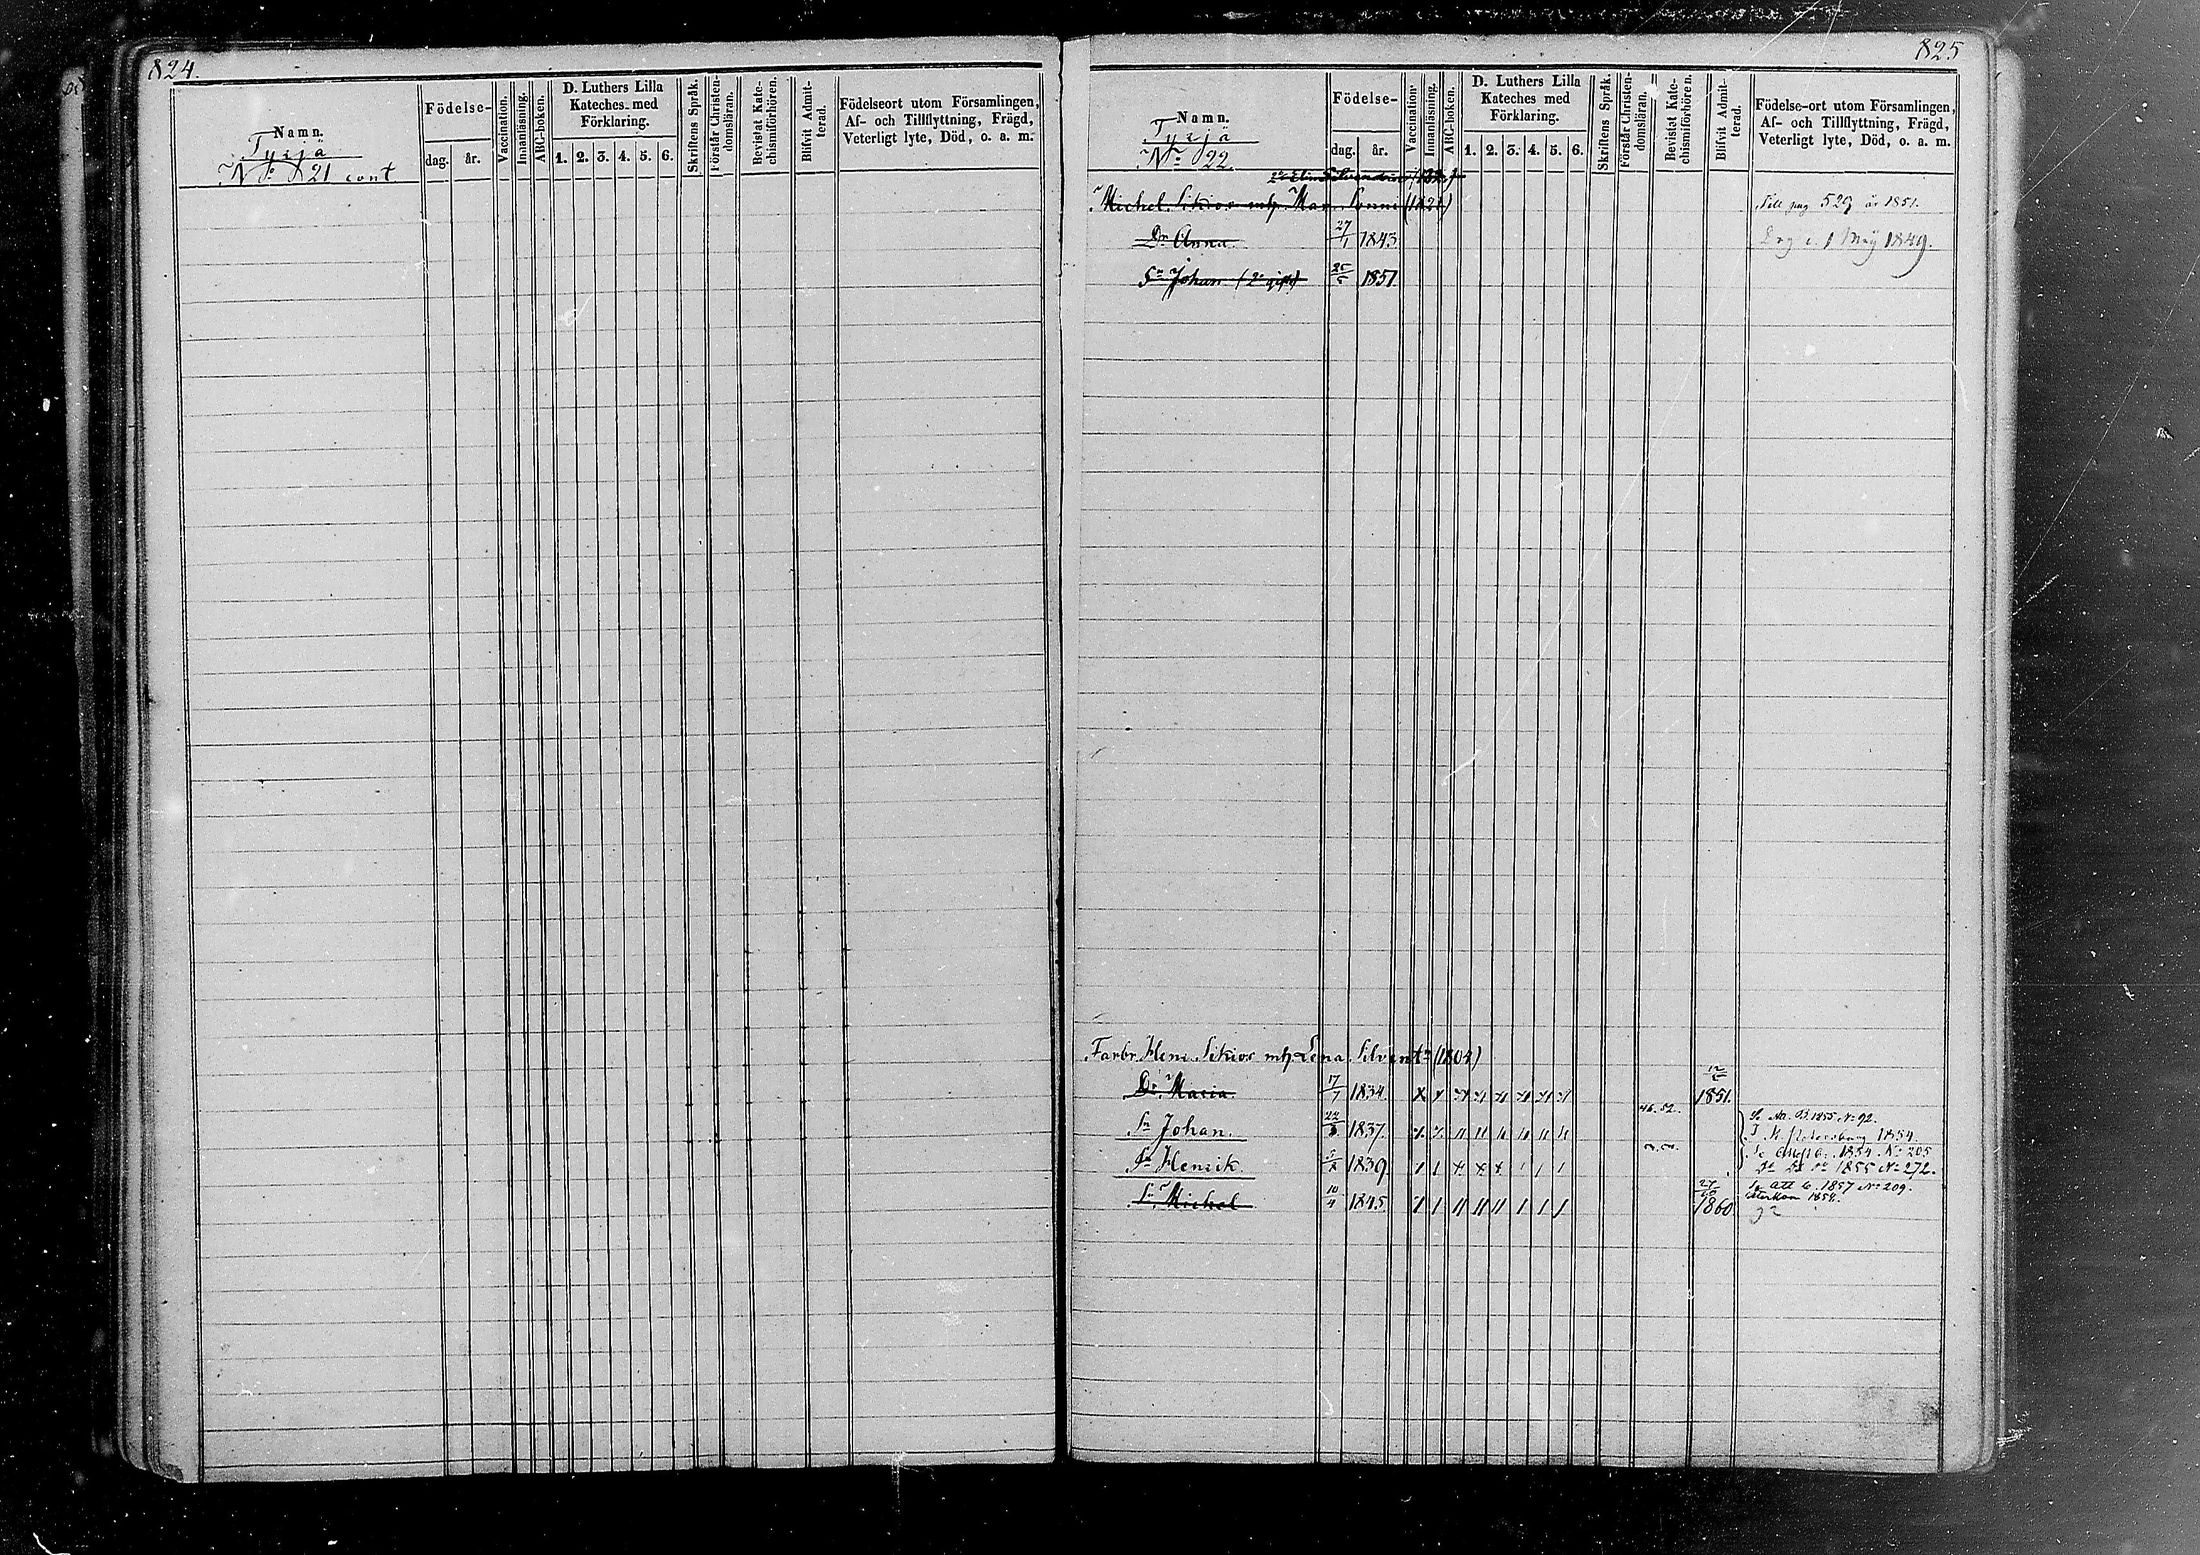 824.
Namn.
Tyrjä
No 21 cont
Födelse-
dag.
år.
Vaccination.
Innanläsning.
ABC-boken.
D. Luthers Lilla
Kateches med
Förklaring.
1. 2. 3. 4. 5. 6.
Skriftens Språk.
Förstår Christen-
domsläran.
Bevistat Kate-
chismiförhören.
Blifvit Admit-
terad.
Födelseort utom Församlingen,
Af- och Tillflyttning, Frägd,
Veterligt lyte, Död, o. a. m.
825
Namn.
Tyrjä
No 22.
Födelse-
dag.
år.
Vaccination
Innanläsning.
ABC-boken.
D. Luthers Lilla
Kateches med
Förklaring.
1. 2. 3. 4. 5. 6.
Skriftens Språk.
Förstår Christen-
domsläran.
Bevistat Kate-
chismiförhören.
Blifvit Admit-
terad.
Födelse-ort utom Församlingen,
Af- och Tillflyttning, Frägd,
Veterligt lyte, Död, o. a. m.
Michel (1821) Till pag 529 år 1851.
Dr Anna 27/1 1843 1 Maij 1849.
Sn Johan (2 gift) 1851
Farbr. Henr. mh Lena Silvent (1804)
Dr Maria 17/7 1834. 1851.
Sn Johan. 1837. 46. 52. 1855 No 92.
St. Petersburg 1854.
Sn Henrik 1839 1854. No 205
1855 No 272.
Sn Michel 10/4 1845 1860 1857 No 209.
Återkom 1858.